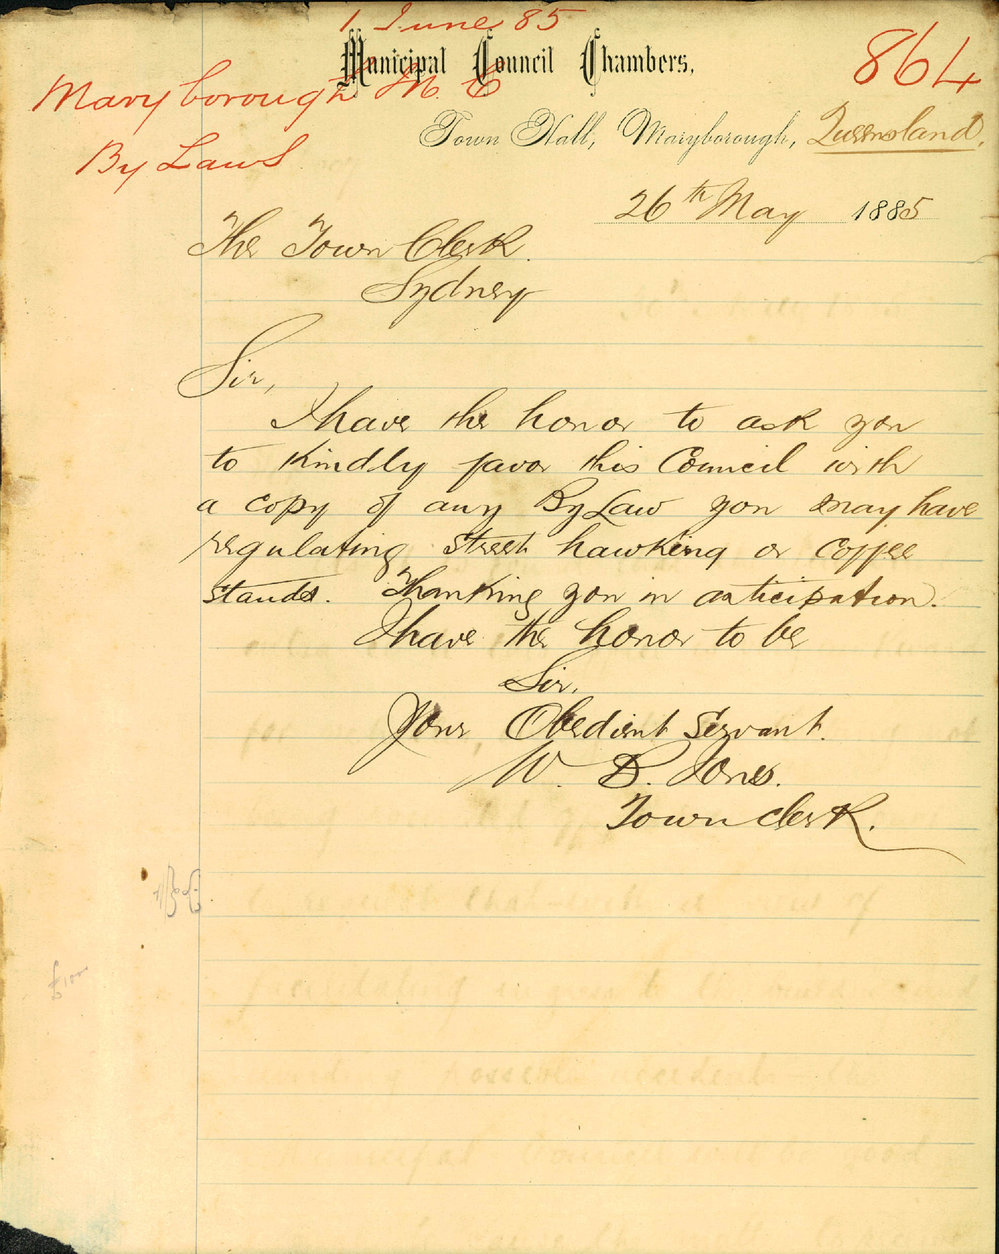 1 June 85
Municipal Council Chambers,
864
Maryborough M. C
Town Hall, Maryborough, Queensland.
By Laws
26th May 1885
The Town Clerk.
Sydney
Sir,
I have the honor to ask you
to kindly favor this Council with
a copy of any By Law you may have
regulating street hawking or coffee
stands. Thanking you in anticipation.
I have the honor to be
Sir,
Your Obedient Servant.
W. B. Jones.
Town Clerk.